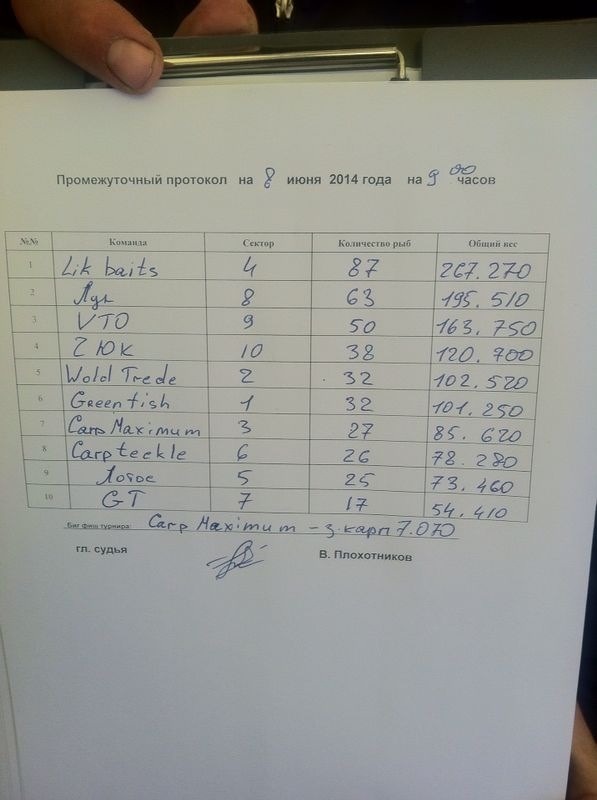 Промежуточный протокол на 8 июня 2014 года на 9 00 часов
№№ Команда Сектор Количество рыб Общий вес
1 Lik baits 4 87 267.270
2 8 63 195.510
3 VTO 9 50 163.750
4 2 ЮК 10 38 120.900
5 Wold Trede 2 32 102.520
6 Greenfish 1 32 101.250
7 Carp Maximum 3 27 85.620
8 Carpteckle 6 26 78.280
9 Лотос 5 25 73.460
10 GT 7 17 54.410
Биг фиш турнира: Carp Maximum - з.карп 7.070
гл. судья В. Плохотников